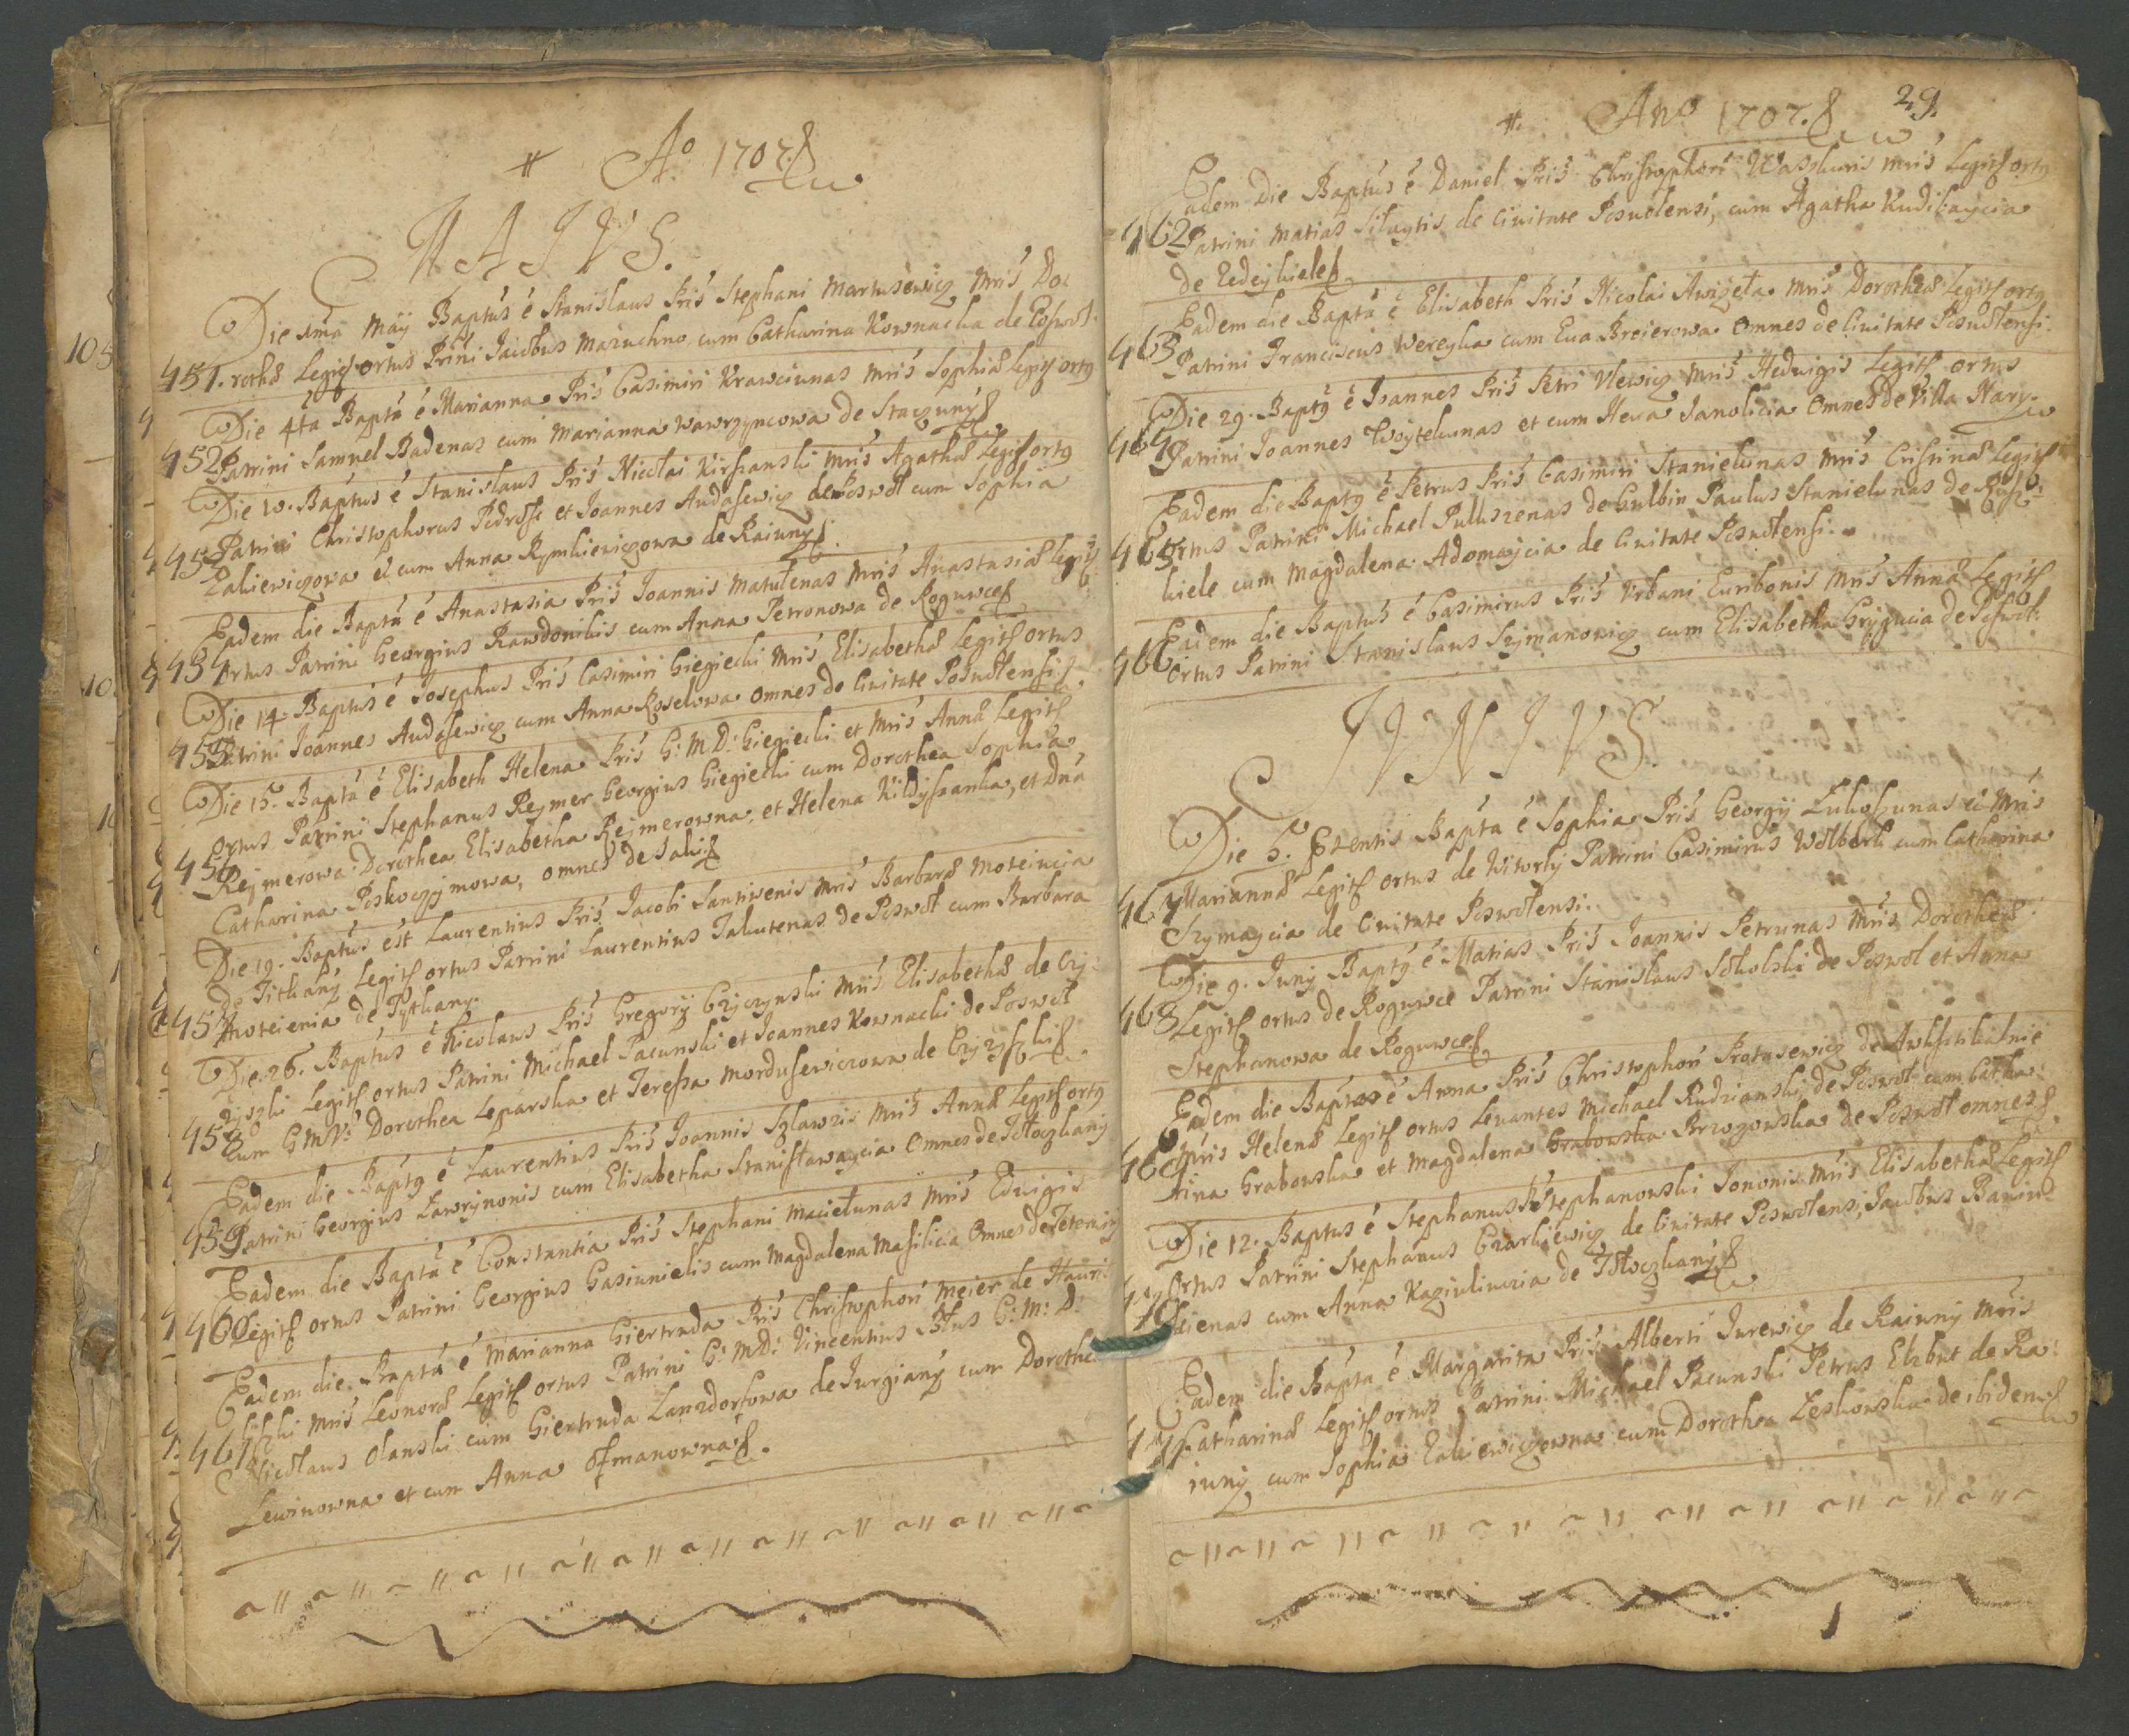 Aº 1707.
MAIVS.
Die 1ma Maÿ Baptús é Stanislaus Pris Stephani Martusewicz Mris Do-
451. rothæ Legit ortus Prini Jacobus Mazuchno cum Catharina Kownacka de Poswol.
Die 4ta Baptá é Marianna Pris Casimiri Krawciunas Mris Sophiæ Legit ortg
452 Patrini Samuel Badenas cum Marianna Wawrzyncowa de Staczuny
Die 10. Baptús é Stanislaus Pris Nicolai Kirszanski Mris Agathæ Legit ortg
453 Patrini Christophorus et Joannes Audasewicz de Poswol cum Sophia
Zaliewiczowa et cum Anna Rymkiewiczowa de Raiuny.
Eadem die Baptá é Anastasia Pris Joannis Matulenas Mris Anastasiæ Legit
454 ortus Patrini Georgius Rawdonikis cum Anna Petronowa de Roguwce
Die 14. Baptús é Josephus Pris Casimiri Giegiecki Mris Elisabethæ Legit ortus
455 Patrini Joannes Audasewicz cum Anna Roselowa omnes de Ciuitate Posuolensi.
Die 15. Baptá é Elisabeth Helena Pris G: M D: Giegiecki et Mris Annæ Legit
456 ortus Patrini Stephanus Rejmer Georgius Giegiecki cum Dorothea Sophia
Rejmerowa Dorothea Elisabetha Rejmerowna, et Helena et Dna
Catharina omnes de Saki
Die 19. Baptús est Laurentius Pris Jacobi Santwenis Mris Barbaræ Moteiucia
457 de Titkany Legit ortus Patrini Laurentius Jakutenas de Poswol cum Barbara
Moteienia de Tytkany.
Die 26. Baptús é Nicolaus Pris Gregorÿ Czyczynski Mris Elisabethæ de Czy-
458 Legit ortus Patrini Michael Pacunski et Joannes Kownacki de Poswol
cum G M V: Dorothea Leparska et Teressa Mordusewiczowa de
Eadem die Baptg é Laurentius Pris Joannis Szlawzis Mris Annæ Legit ortg
459 Patrini Georgius Lawrynonis cum Elisabetha Stanisławaycia Omnes de Tołoczkany
Eadem die Baptá é Constantia Pris Stephani Maciełunas Mris Eduigis
460 Legit ortus Patrini Georgius Gasiunielis cum Magdalena Masilicia Omnes de
Eadem die Baptá é Marianna Giertruda Pris Christophori Meier de
461 Mris Leonoræ Legit ortus Patrini G: M D: Vincentius G: M: D:
Nicolaus Olanski cum Giertruda Lanzdorfowa de Jurgiany cum Dorothe
Lewinowna et cum Anna Ofmanowna.
Anº 1707. 29.
Eadem Die Baptús é Daniel Pris Christophori Waszkuris Mris Legit ortg
462 Patrini Matias Silaytis de Ciuitate Posuolensi, cum Agatha Kudikaycia
de
Eadem die Baptá é Elisabeth Pris Nicolai Awizeła Mris Dorotheæ Legit ortg
463 Patrini Franciscus Wereyka cum Eua Breierowa Omnes de Ciuitate Posuolensi.
Die 29. Baptg é Joannes Pris Petri Vlewicz Mris Heduigis Legit ortus
464 Patrini Joannes Woytekunas et cum Hewa Janolicia Omnes de Villa Nary.
Eadem die Baptg é Petrus Pris Casimiri Stanielunas Mris Cristinæ Legit
465 ortus Patrini Michael Pulluszenas de Gulbin Paulus Stanielunas de
kiele cum Magdalena Adomaycia de Ciuitate Posuolensi.
Eadem die Baptús é Casimirus Pris Vrbani Euribonis Mris Annæ Legit
466 Ortus Patrini Stanislaus Szymanowicz cum Elisabetha Grygucia de Poswol.
IVNIVS.
Die 5. Pzentis Baptá é Sophia Pris Georgÿ et Mris
467 Mariannæ Legit ortus de Patrini Casimirus Wolbek cum Catharina
Szymaycia de Ciuitate Poswolensi.
Die 9. Junÿ Baptg é Matias Pris Joannis Petrunas Mris Dorotheæ
468 Legit ortus de Roguwce Patrini Stanislaus Sokolski de Poswol et Anna
Stephanowa de Roguwce
Eadem die Baptus é Anna Pris Christophori Protasewicz de
469 Mris Helenæ Legit ortus Leuantes Michael Rudzianski de Poswol cum Catha-
rina Grabowska et Magdalena Grabowska de Poswol omnes
Die 12. Baptus é Stephanus Pris Stephanowski Jononis Mris Elisabethæ Legit
470 Ortus Patrini Stephanus Czarkiewicz de Ciuitate Poswolensi, Jacobus
cienas cum Anna Kaziuliucia de Tołoczkany
Eadem die Baptá é Margarita Pris Alberti Jurewicz de Raiuny Mris
471 Catharinæ Legit ortus Patrini Michael Pacunski Petrus Elzbut de Ra-
iuny cum Sophia Zaliewiczowna cum Dorothea Leskowska de ibidem